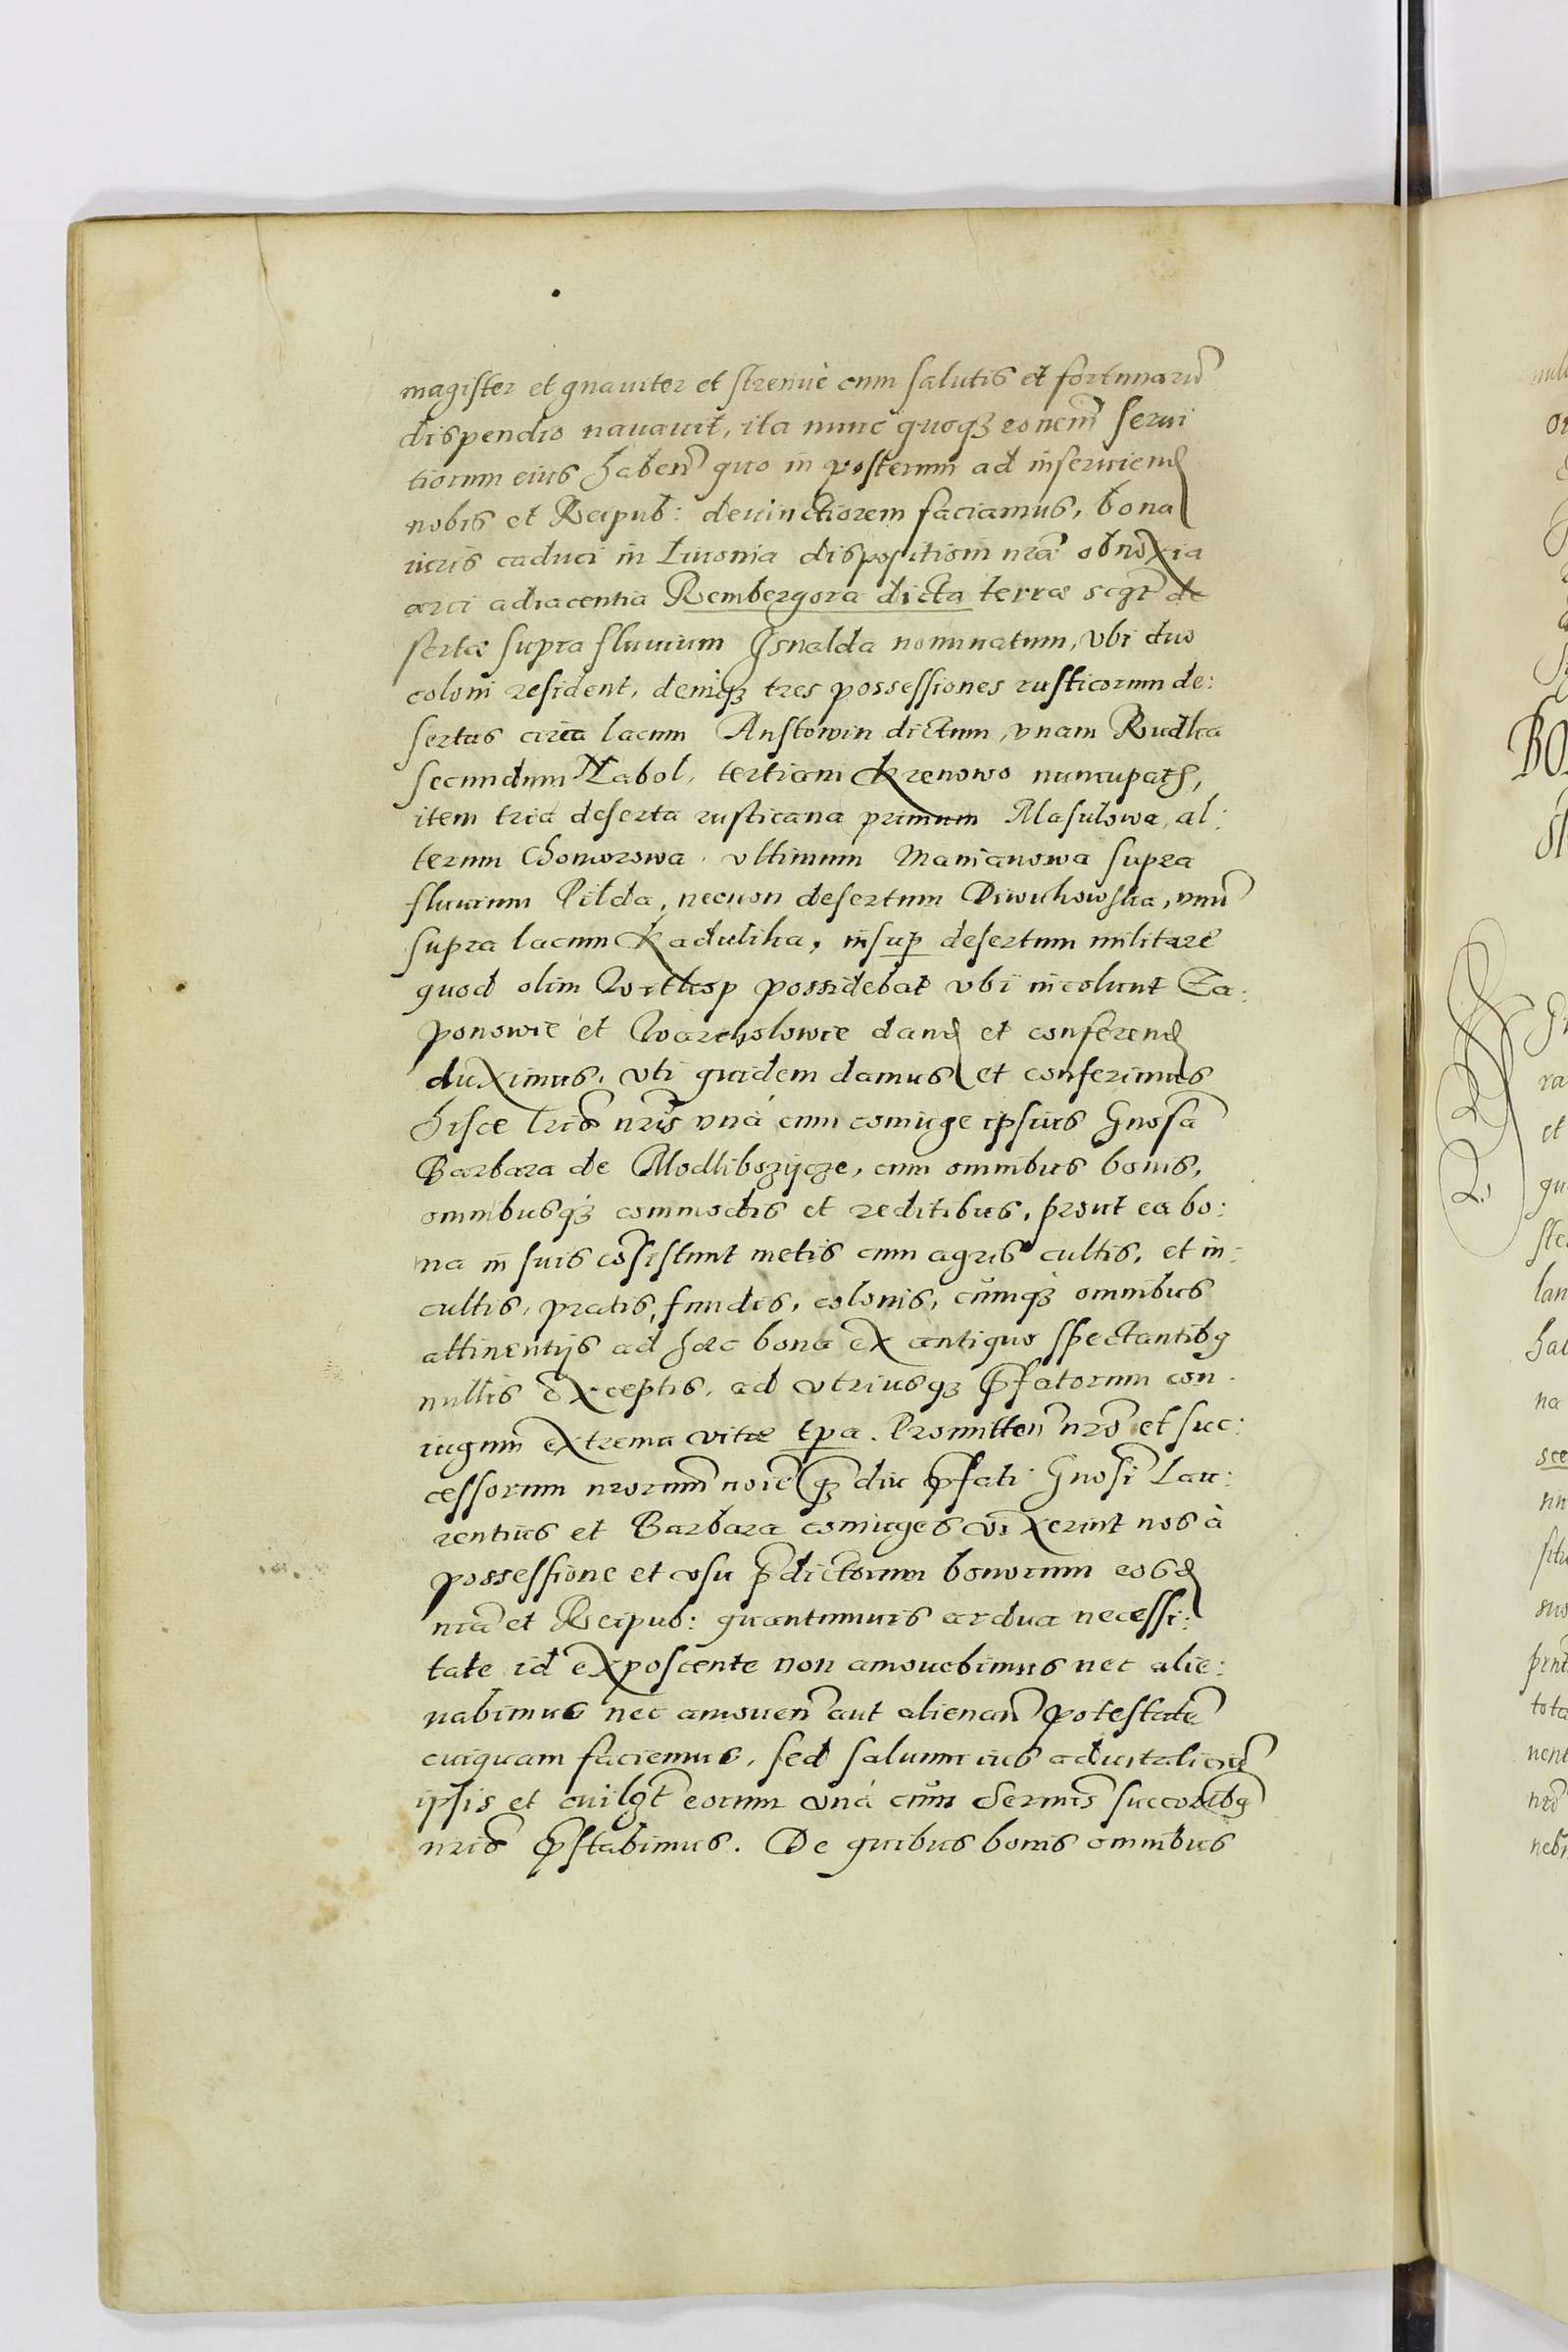 magister et gnauiter et strenuè cum salutis et fortunarũ
dispendio nauauit, ita nunc quoqꝫ rõnem̃ serui
tiorum eius haben̄ quo in posterum ad inseruiend
nobis et Reipub: deuinctiorem faciamus, bona
iuris caduci in Liuonia dispositioni nræ obnoxia
arci adiacentia Rembergora dicta terræ de
sertæ supra fluuium Isnalda nominatum, vbi duo
coloni resident, deniqꝫ tres possessiones rusticorum de:
sertas circa lacum Anstowin dictum, vnam Rudka
secundum Nabol, tertiam Krenowo nuncupat,
item tria deserta rusticana primum Masulowa, al:
terum Chomorowa, vltimum Manianowa supra
fluuium Pilda, necnon desertum Diwuhowska, vnũ
supra lacum Kadulika, insuꝑ desertum militare
quod olim Wetkop possidebat vbi incolunt Za:
ponowie et Warcholowie dand et conferend
duximus, vti quidem damus et conferimus
hisce lris nris vnà cum coniuge ipsius Gnosa
Barbara de Modlibozijcze, cum omnibus bonis,
omnibusqꝫ commodis et reditibus, prout ea bo:
na in suis cõsistunt metis cum agris cultis, et in:
cultis, pratis, fundis, colonis, cùmqꝫ omnibus
attinentijs ad hæc bona ex antiquo spectantibꝯ
nullis exceptis, ad vtriusqꝫ p̃fatorum con:
iugum extrema vitæ tpa. Promitten̄ nro et suc:
cessorum nrorum noie qꝫ diu p̃fati Gnosi Lau:
rentius et Barbara coniuges vixerint nos à
possessione et vsu p̃dictorum bonorum eosd
nra et Reipub: quantumuis ardua necessi:
tate id exposcente non amouebimus nec alie:
nabimus nec amouen̄ aut alienan̄ potestatẽ
cuiquam faciemus, sed saluum ius aduitaliciũ
ipsis et cuilibet eorum vnà cum Sermis succoribꝯ
nris p̃stabimus. De quibus bonis omnibus